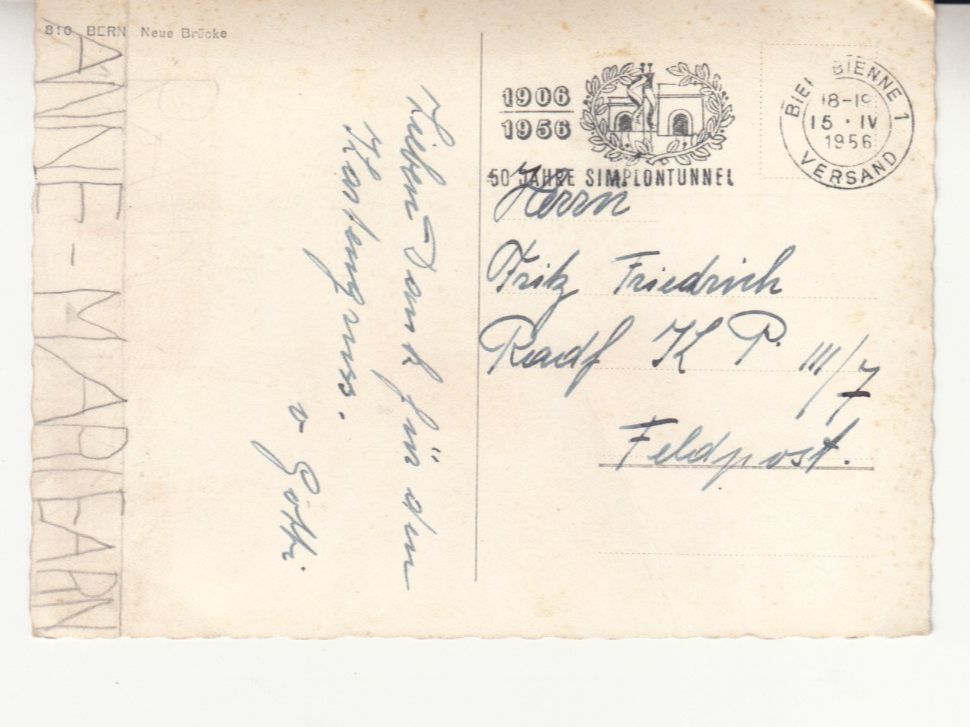 810 BERN Neue Brücke
1906
1956
50 JAHRE SIMPLONTUNNEL
BIEL BIENNE 1
18-19
15 · IV
1956
VERSAND
Herrn
Fritz Friedrich
Radf K P. III/7
Feldpost.
Lieben Dank für den
Kartengruss.
v Götti
ANNE-MARIE ARN